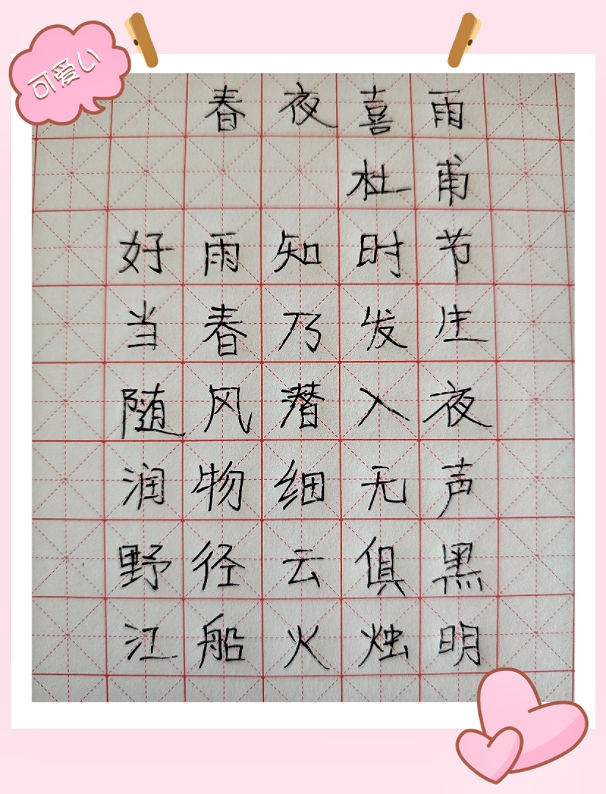 可爱い
春夜喜雨
杜甫
好雨知时节
当春乃发生
随风潜入夜
润物细无声
野径云俱黑
江船火烛明